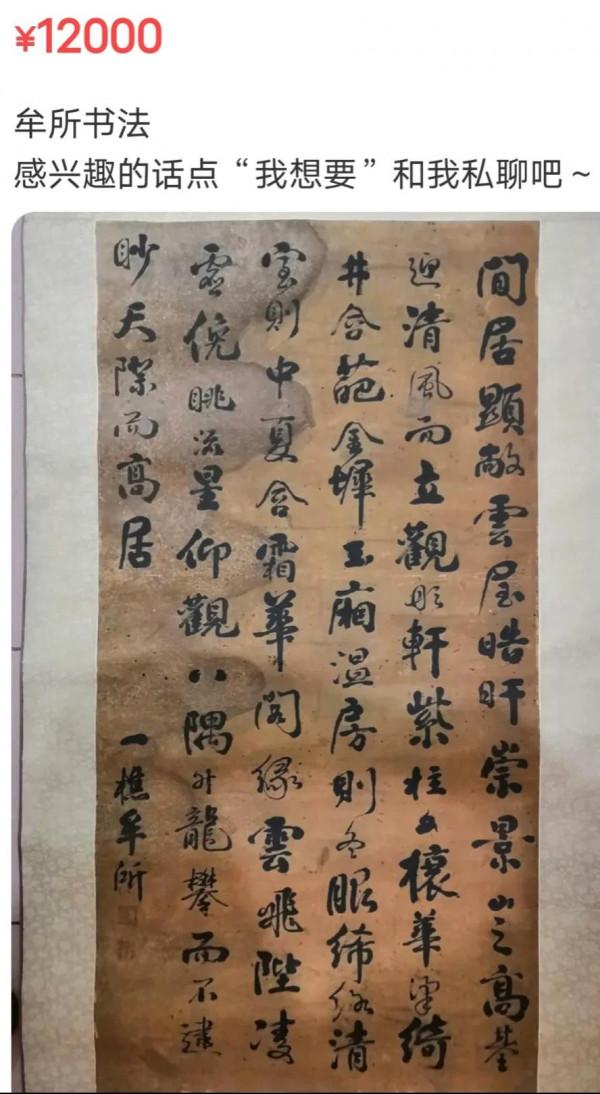 ¥12000
牟所书法
感兴趣的话点“我想要”和我私聊吧~
間居顯敞雲屋晧旰崇景山之高基
迎清風而立觀彤軒紫柱文榱華梁綺
井含葩金墀玉廂温房則冬服絺綌清
室則中夏含霜華閣緣雲飛陛凌
虛俛眺流星仰觀八隅升龍攀而不逮
眇天際而高居
一樵牟所